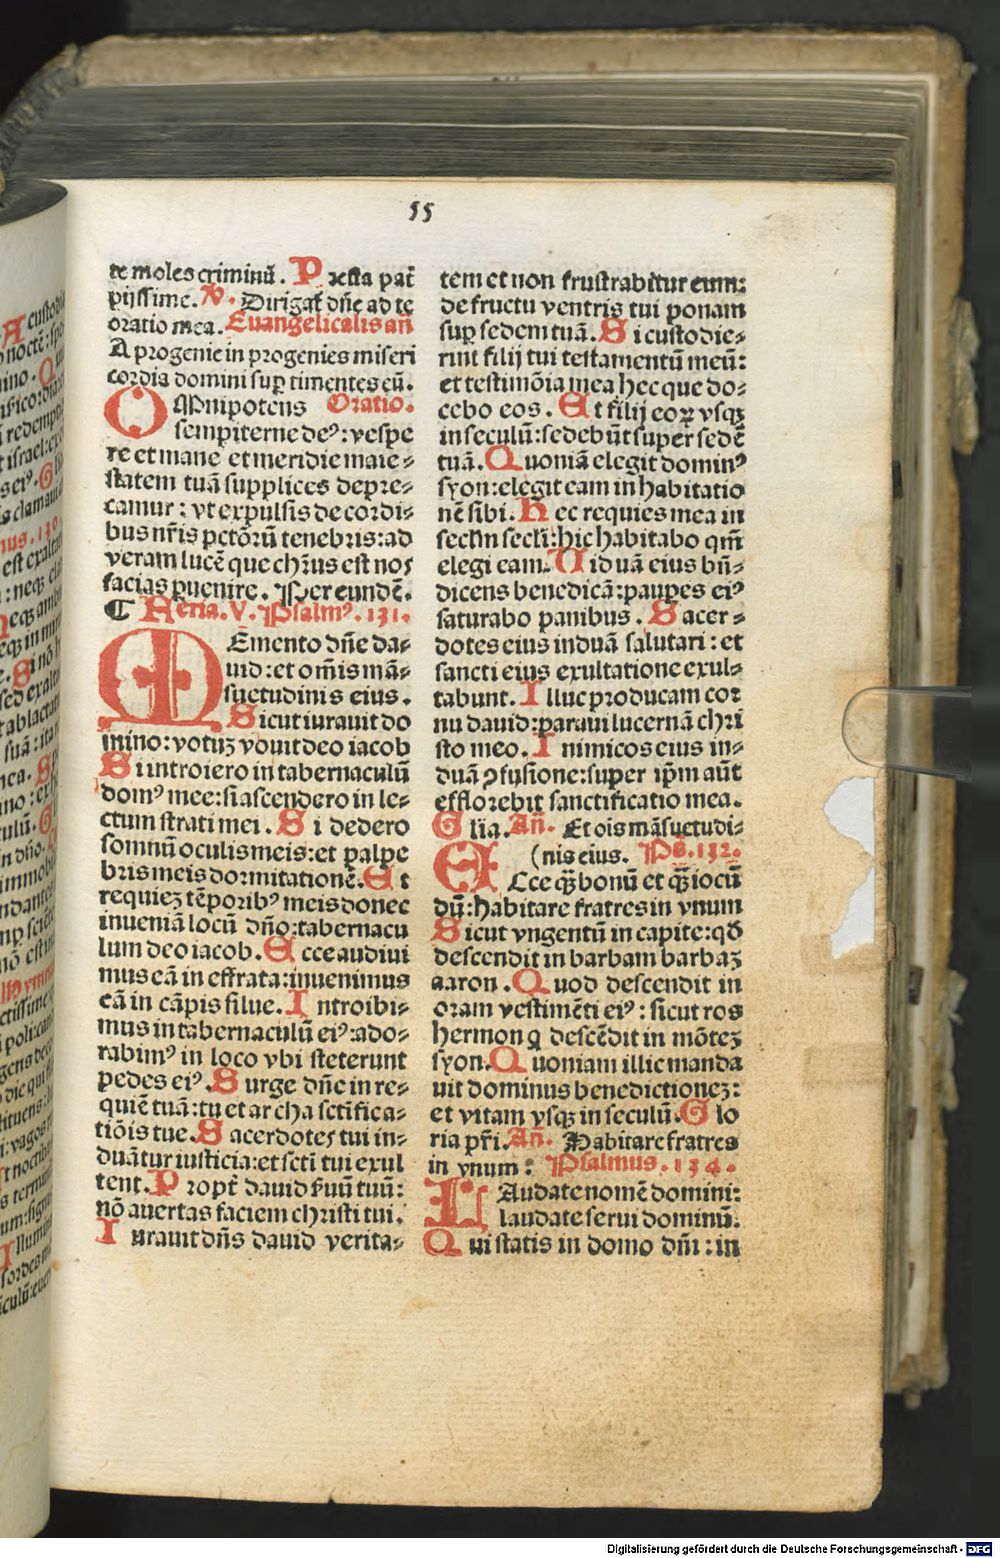 55
te moles criminū. Presta pat̄
pijssime. ℣. Dirigat̄ dn̄e ad te
oratio mea. Euangelicalis an̄
A progenie in progenies miseri
cordia domini sup timentes eū.
OMnipotens Oratio.
sempiterne deꝰ: vespe
re et mane et meridie maie⸗
statem tuā supplices depre⸗
camur: vt expulsis de cordi⸗
bus nr̄is pctōrū tenebris: ad
veram lucē que chr̄us est nos
facias puenire. Per eundē.
Feria. V. Psalmꝰ. 131.
MEmento dn̄e da⸗
uid: et om̄is mā⸗
suetudinis eius.
Sicut iurauit do
mino: votuꝫ vouit deo iacob
Si introiero in tabernaculū
domꝰ mee: si ascendero in le⸗
ctum strati mei. Si dedero
somnū oculis meis: et palpe
bris meis dormitationē. Et
requieꝫ tēporibꝰ meis donec
inueniā locū dn̄o: tabernacu
lum deo iacob. Ecce audiui
mus eā in effrata: inuenimus
eā in cāpis silue. Introibi⸗
mus in tabernaculū eiꝰ: ado⸗
rabimꝰ in loco vbi steterunt
pedes eiꝰ. Surge dn̄e in re⸗
quiē tuā: tu et archa sctifica⸗
tiōis tue. Sacerdotes tui in⸗
duātur iusticia: et scti tui exul
tent. Propt̄ dauid ẜuū tuū:
nō auertas faciem christi tui.
Iurauit dn̄s dauid verita⸗
tem et non frustrabitur eum:
de fructu ventris tui ponam
sup sedem tuā. Si custodie⸗
rint filij tui testamentū meū:
et testimōia mea hec que do⸗
cebo eos. Et filij eoꝝ vsqꝫ
in seculū: sedebūt super sedē
tuā. Quoniā elegit dominꝰ
syon: elegit eam in habitatio
nē sibi. Hec requies mea in
seclm̄ secli̅: hic habitabo qm̄
elegi eam. Uiduā eius bn̄⸗
dicens benedicā: paupes eiꝰ
saturabo panibus. Sacer⸗
dotes eius induā salutari: et
sancti eius exultatione exul⸗
tabunt. Illuc producam cor
nu dauid: paraui lucernā chri̅
sto meo. Inimicos eius in⸗
duā ꝯfusione: super ip̄m aūt
efflorebit sanctificatio mea.
Glia. An̄. Et oi̅s māsuetudi⸗
(nis eius. Ps̄. 132.
ECce qꝫ bonū et qꝫ iocū
dū: habitare fratres in vnum
Sicut vngentū in capite: qd̄
descendit in barbam barbaꝫ
aaron. Quod descendit in
oram vestimēti eiꝰ: sicut ros
hermon q descēdit in mōteꝫ
syon. Quoniam illic manda
uit dominus benedictioneꝫ:
et vitam vsqꝫ in seculū. Glo
ria pr̄i. An̄. Habitare fratres
in vnum: Psalmus. 134.
LAudate nomē domini:
laudate serui dominū.
Qui statis in domo dn̄i: in
Digitalisierung gefördert durch die Deutsche Forschungsgemeinschaft - DFG